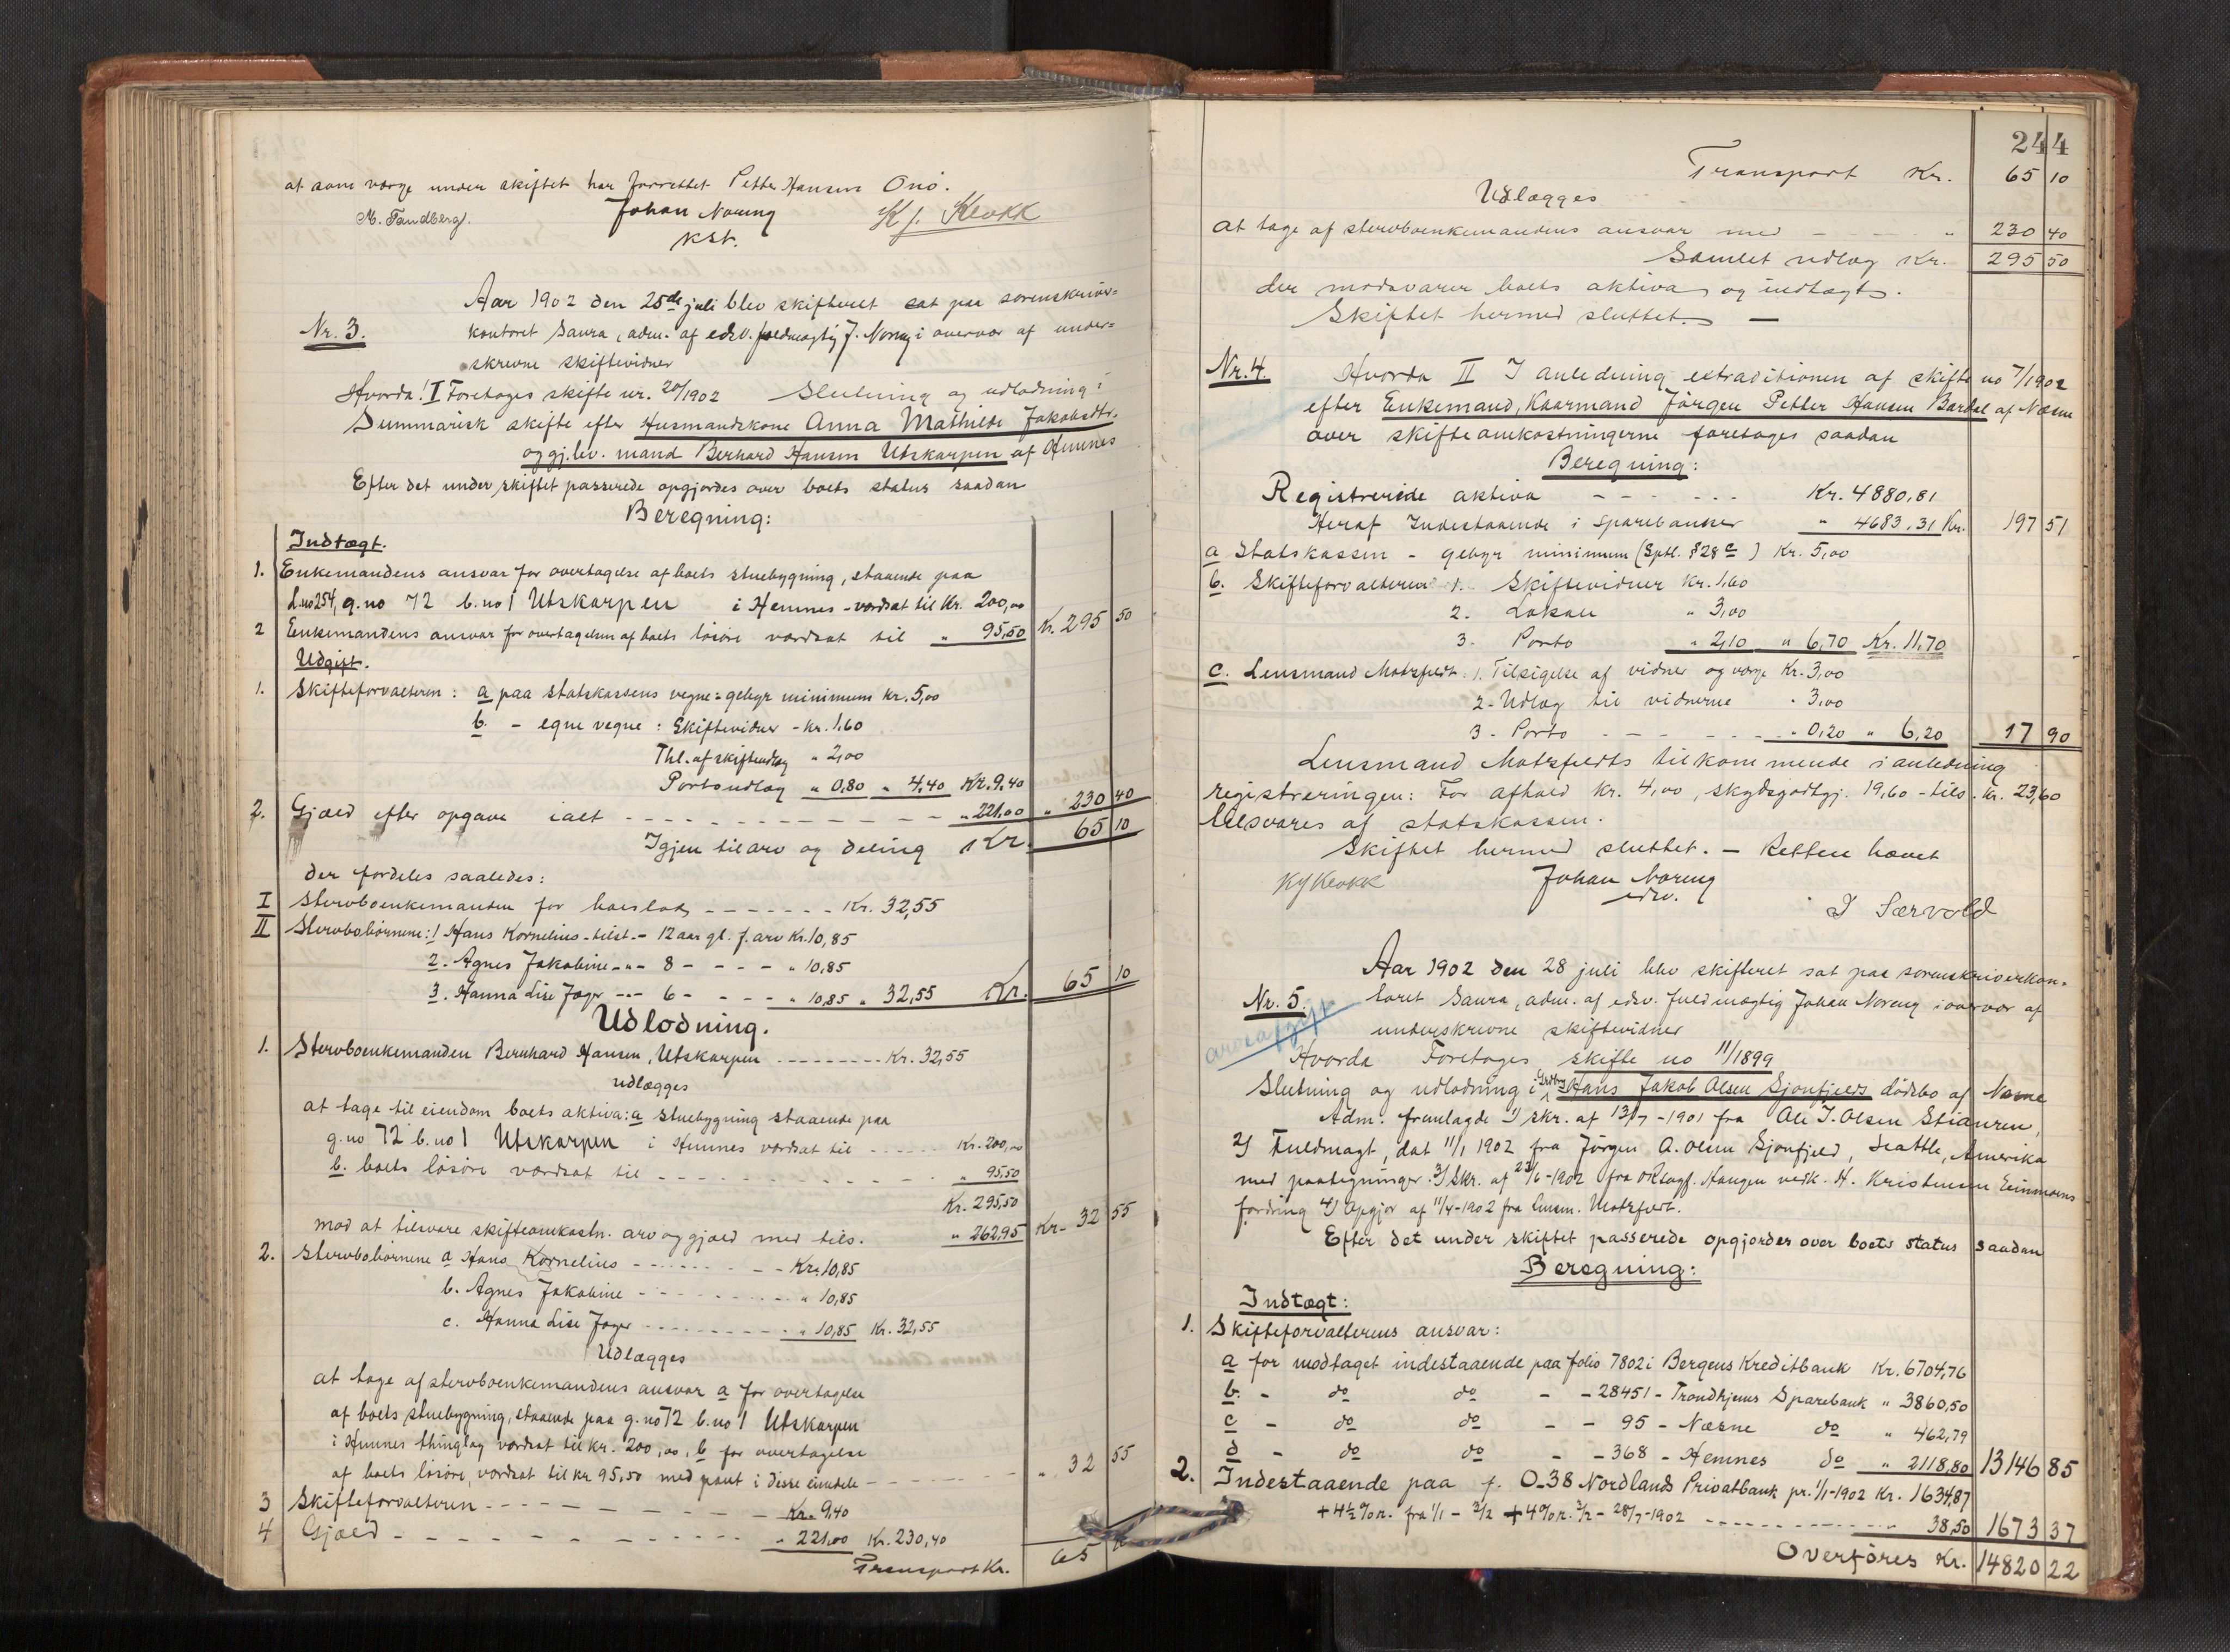 at som værge under skiftet har forrettet Petter Hansen Onö.
M. Tandberg. Johan Noreng Kj. Klokk
kst.
Aar 1902 den 25de juli blev skifteret sat paa sorenskriver=
Nr. 3. kontoret Saura, adm. af edsv. fuldmægtig J. Noreng i overvær af under=
skrevne skiftevidner
Hvorda! I Foretoges skifte nr. 20/1902 Slutning og udlodning i
Summarisk skifte efter Husmandskone Anna Mathilde Jakobsdtr.
og gj.lev. mand Berhard Hansen Utskarpen af Hemnes
Efter det under skiftet passerede opgjordes over boets status saadan
Beregning:
Indtægt.
1. Enkemandens ansvar for overtagelse af boets stuebygning, staaende paa
L.no 254, g.no 72 b.no 1 Utskarpen i Hemnes - værdsat til Kr. 200,00
2 Enkemandens ansvar for overtagelsen af boets løsøre værdsat til " 95,50 Kr. 295 50
Udgift.
1. Skifteforvalteren: a paa statskassens vegne = gebyr minimum Kr. 5,00
b. - egne vegne: Skiftevidner - Kr. 1,60
Thl. af skifteudlæg " 2,00
Portoudlæg " 0,80 " 4,40 Kr. 9,40
2. Gjæld efter opgave ialt " 221,00 " 230 40
Igjen til arv og deling Kr. 65 10
der fordeles saaledes:
I Stervboenkemanden for boeslod Kr. 32,55
II Stervbobørnene: 1 Hans Kornelius - tilst. - 12 aar gl. f. arv Kr. 10,85
2. Agnes Jakobine -"- 8 - - - - " 10,85
3. Hanna Lise Jager -"- 6 - - - - " 10,85 " 32,55 Kr. 65 10
Udlodning.
1. Stervboenkemanden Bernhard Hansen, Utskarpen Kr. 32,55
udlægges
at tage til eiendom boets aktiva: a stuebygning staaende paa
g.no 72 b.no 1 Utskarpen i Hemnes værdsat til Kr. 200,00
b. boets løsøre værdsat til " 95,50
Kr. 295,50
mod at tilsvare skifteomkostn. arv og gjæld med tils. " 262,95 Kr. 32 55
2. Stervbobørnene a Hans Kornelius Kr. 10,85
b. Agnes Jakobine " 10,85
c. Hanna Lise Jager " 10,85 Kr. 32,55
Udlægges
at tage af stervboenkemandens ansvar a for overtagelse
af boets stuebygning, staaende paa g.no 72 b.no 1 Utskarpen
i Hemnes thinglag værdsat til kr. 200,00, b for overtagelse
af boets løsøre, værdsat til kr 95,50 med pant i disse eiendele " 32 55
3 Skifteforvalteren Kr. 9,40
4 Gjæld " 221,00 Kr. 230,40
Transport Kr. 65 10
244
Transport Kr. 65 10
Udlægges
at tage af stervboenkemandens ansvar med " 230 40
Samlet udlæg Kr. 295 50
der modsvarer boets aktiva og indtægt.
Skiftet hermed sluttet. —
Nr. 4. Hvorda II I anledning extraditionen af skifte no 7/1902
efter Enkemand, Kaarmand Jörgen Petter Hansen Bardal af Næsne
over skifteomkostningerne foretoges saadan
Beregning:
Registrerede aktiva Kr. 4880,81
Heraf Indestaaende i Sparebanker " 4683,31 Kr. 197 51
a Statskassen - gebyr minimum (Sptl. § 28 c) Kr. 5,00
b. Skifteforvalteren 1. Skiftevidner Kr. 1,60
2. Lokale " 3,00
3. Porto " 2,10 " 6,70 Kr. 11,70
c. Lensmand Motzfeldt. 1. Tilsigelse af vidner og værge Kr. 3,00
2 - Udlæg til vidnerne " 3,00
3 - Porto " 0,20 " 6,20 17 90
Lensmand Motzfeldts tilkommende i anledning
registreringen: For afhold Kr. 4,00, skydsgodtgj. 19,60 - tils. Kr. 23,60
tilsvares af statskassen.
Skiftet hermed sluttet. — Retten hævet
Kj Klokk Johan Noreng
edsv.
Aar 1902 den 28 juli blev skifteret sat paa sorenskriverkon=
Nr. 5. toret Saura, adm. af edsv. fuldmægtig Johan Noreng i overvær af
underskrevne skiftevidner
arveafgift
Hvorda Foretoges skifte no 11/1899
Slutning og udlodning i Hans Jakob Olsen Sjonfjelds dödsbo af Næsne
Adm. fremlagde 1) skr. af 13/7 - 1901 fra Ole J. Olsen
2) Fuldmagt, dat 11/1 1902 fra Jörgen A. Olsen Sjonfjeld, Seattle, Amerika
med paategninger. 3) Skr. af 23/6 - 1902 fra Haugen vedk. H. Kristensen
fordring 4) Opgjör af 11/4 - 1902 fra lensm. Motzfeldt.
Efter det under skiftet passerede opgjordes over boets status saadan
Beregning:
Indtægt:
1. Skifteforvalterens ansvar:
a for modtaget indestaaende paa folio 7802 i Bergens Kreditbank Kr. 6704,76
b. - do do - - 28451 - Trondhjems Sparebank " 3860,50
c - do do - - 95 - Næsne do " 462,79
d - do do - - 368 - Hemnes do " 2118,80 13146 85
2. Indestaaende paa f. O-38 Nordlands Privatbank pr. 1/1 - 1902 Kr. 1634,87
+ 4½ % r. fra 1/1 - 3/2 + 4 % r. 3/2 - 28/7 - 1902 " 38,50 1673 37
Overføres Kr. 14820 22